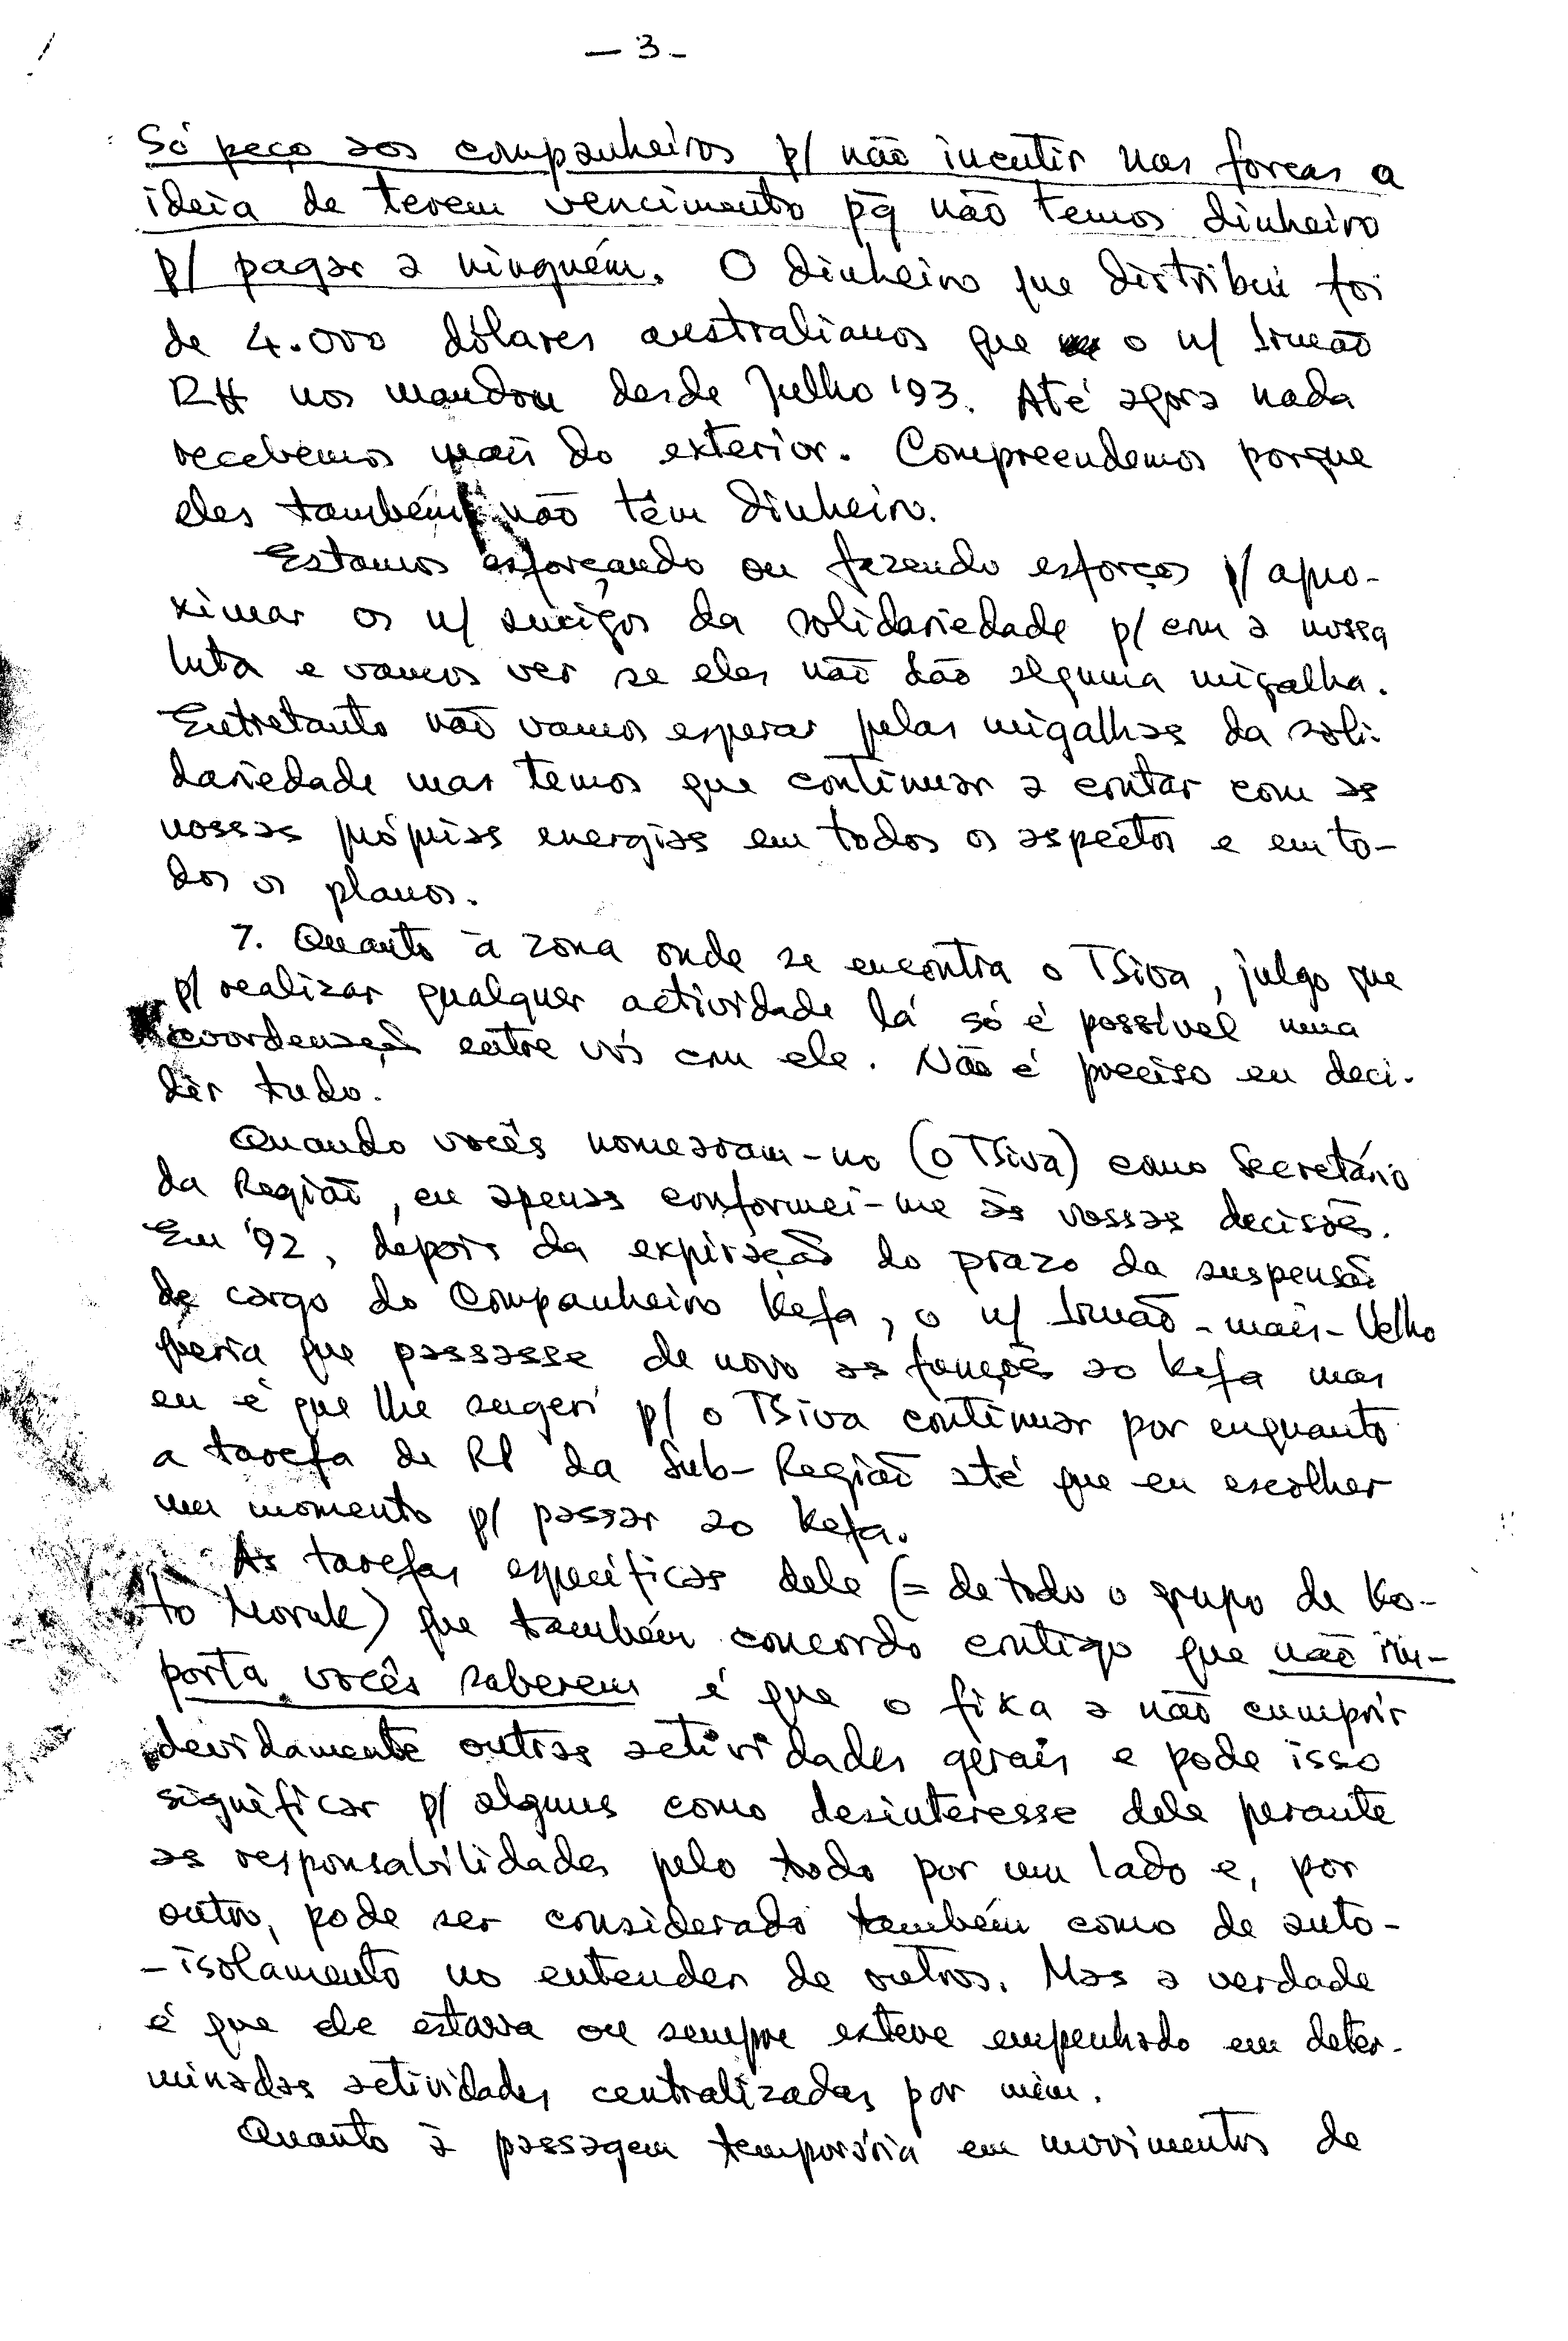 — 3 -
Só peço aos companheiros p/ não incutir nas forças a
ideia de terem vencimento pq não temos dinheiro
p/ pagar a ninguém. O dinheiro que distribui foi
de 4.000 dólares australianos que o n/ Irmão
RH nos mandou desde Julho '93. Até agora nada
recebemos mais do exterior. Compreendemos porque
eles também não têm dinheiro.
Estamos esforçando ou fazendo esforços p/ apro-
ximar os n/ amigos da solidariedade p/ com a nossa
luta e vamos ver se eles não dão alguma migalha.
Entretanto não vamos esperar pelas migalhas da soli-
dariedade mas temos que continuar a contar com as
nossas próprias energias em todos os aspectos e em to-
dos os planos.
7. Quanto à zona onde se encontra o TSiva, julgo que
p/ realizar qualquer actividade lá só é possível uma
coordenação entre vós com ele. Não é preciso eu deci-
dir tudo.
Quando vocês nomearam-no (o TSiva) como Secretário
da Região, eu apenas conformei-me às vossas decisões.
Em '92, depois da expiração do prazo da suspensão
de cargo do Companheiro Kefa, o n/ Irmão-mais-Velho
queria que passasse de novo as funções ao Kefa mas
eu é que lhe sugeri p/ o TSiva continuar por enquanto
a tarefa de RP da Sub-Região até que eu escolher
um momento p/ passar ao Kefa.
As tarefas específicas dele (= de todo o grupo de Ko-
to Moruk) que também concordo contigo que não im-
porta vocês saberem é que o fixa a não cumprir
devidamente outras actividades gerais e pode isso
significar p/ alguns como desinteresse dele perante
as responsabilidades pelo todo por um lado e, por
outro, pode ser considerado também como de auto-
-isolamento no entender de outros. Mas a verdade
é que ele estava ou sempre esteve empenhado em deter-
minadas actividades centralizadas por mim.
Quanto à passagem temporária em movimentos de